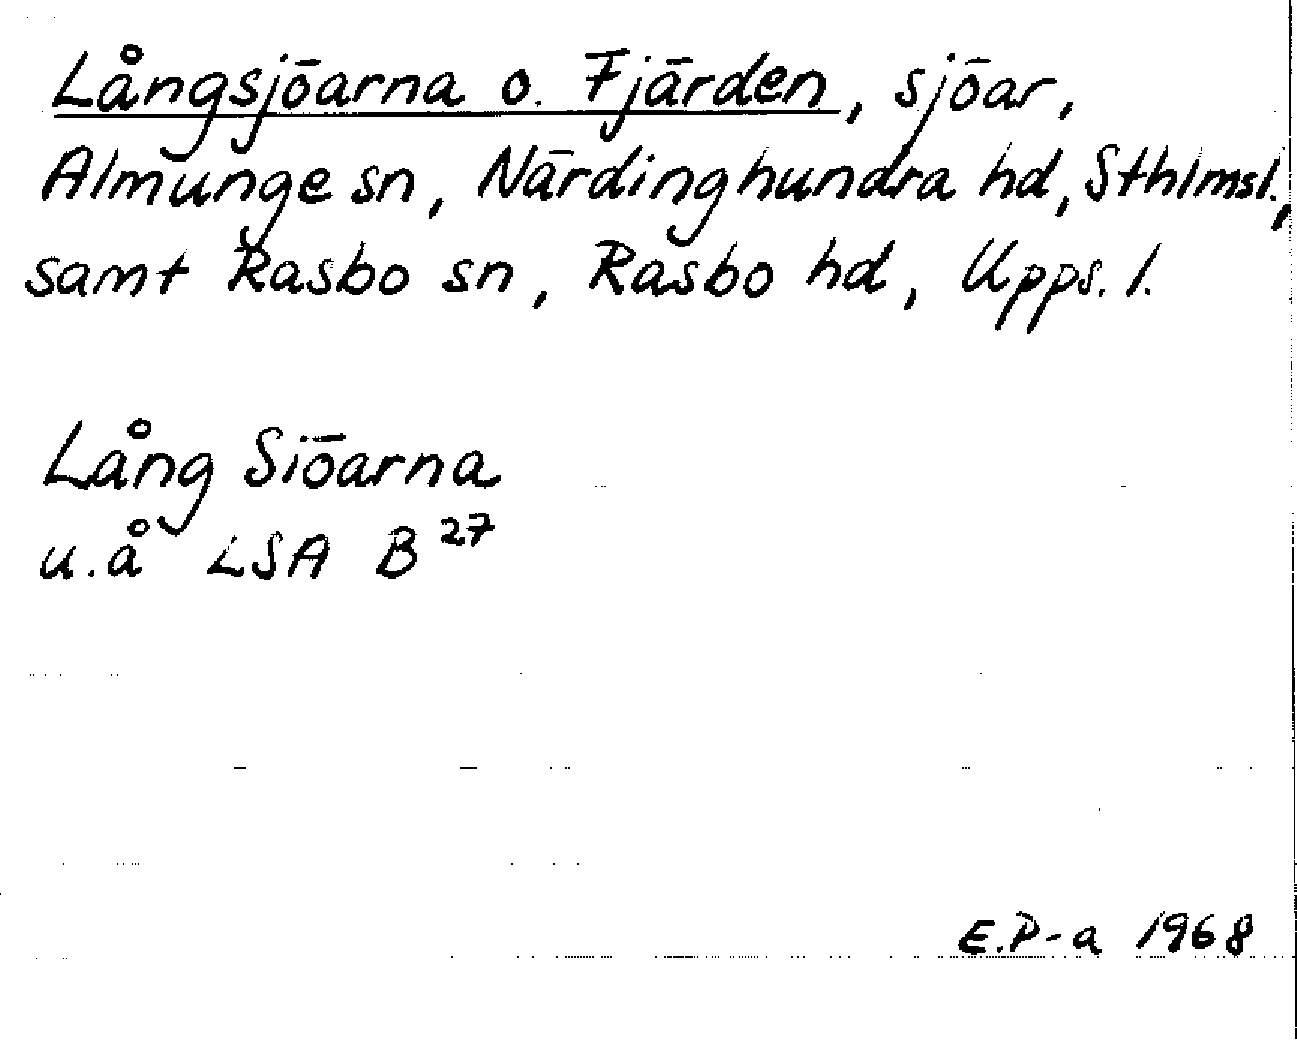 Långsjöarna o. Fjärden, sjöar,
Almunge sn, Närdinghundra hd, Sthlmsl.,
samt Rasbo sn, Rasbo hd, Upps. l.
Lång Siöarna
u.å LSA B 27
E.P-a 1968